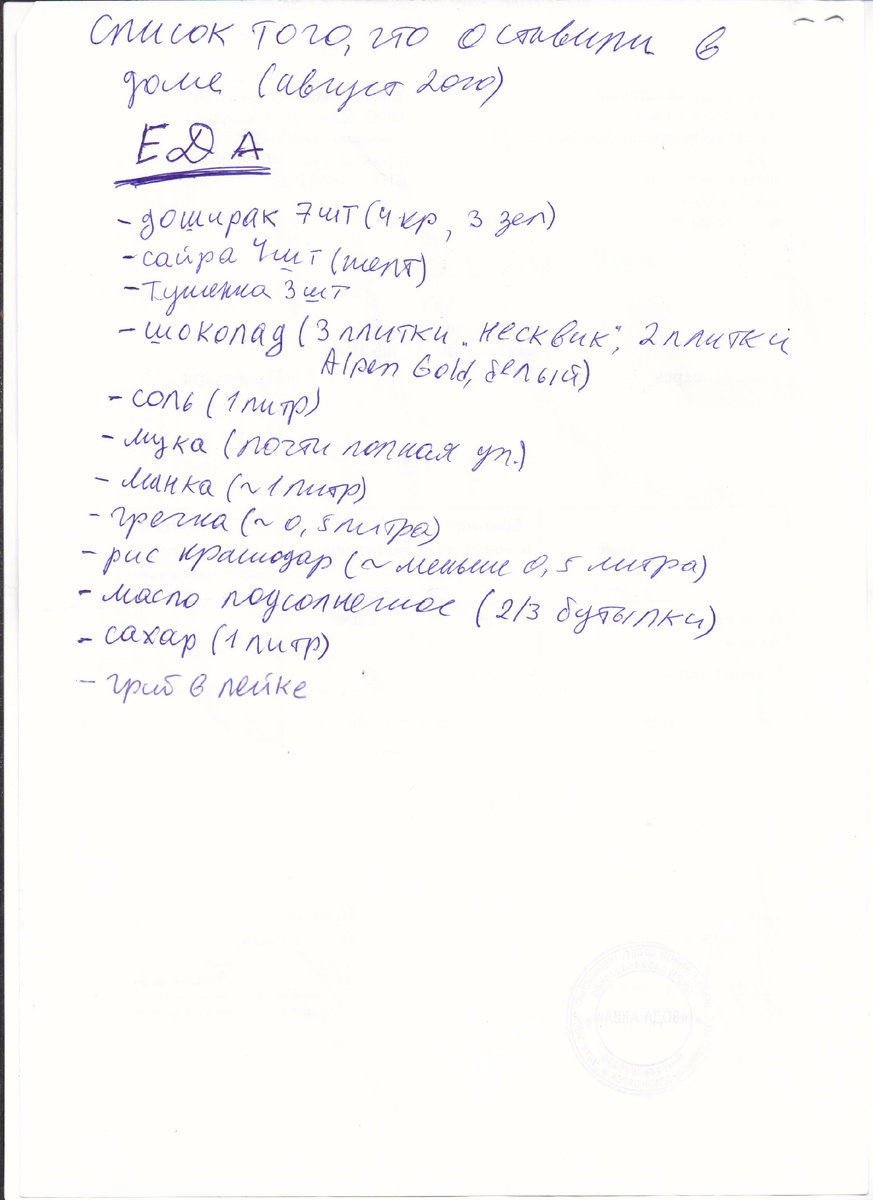 Список того, что оставили в
доме (август 2010)
ЕДА
- доширак 7 шт (4 кр, 3 зел)
- сайра 4 шт (желт)
- тушенка 3 шт
- шоколад (3 плитки „Несквик“, 2 плитки
Alpen Gold, белый)
- соль (1 литр)
- мука (почти полная уп.)
- манка (~ 1 литр)
- гречка (~ 0,5 литра)
- рис краснодар (~ меньше 0,5 литра)
- масло подсолнечное (2/3 бутылки)
- сахар (1 литр)
- гриб в лейке
«ВОДА АКВА»